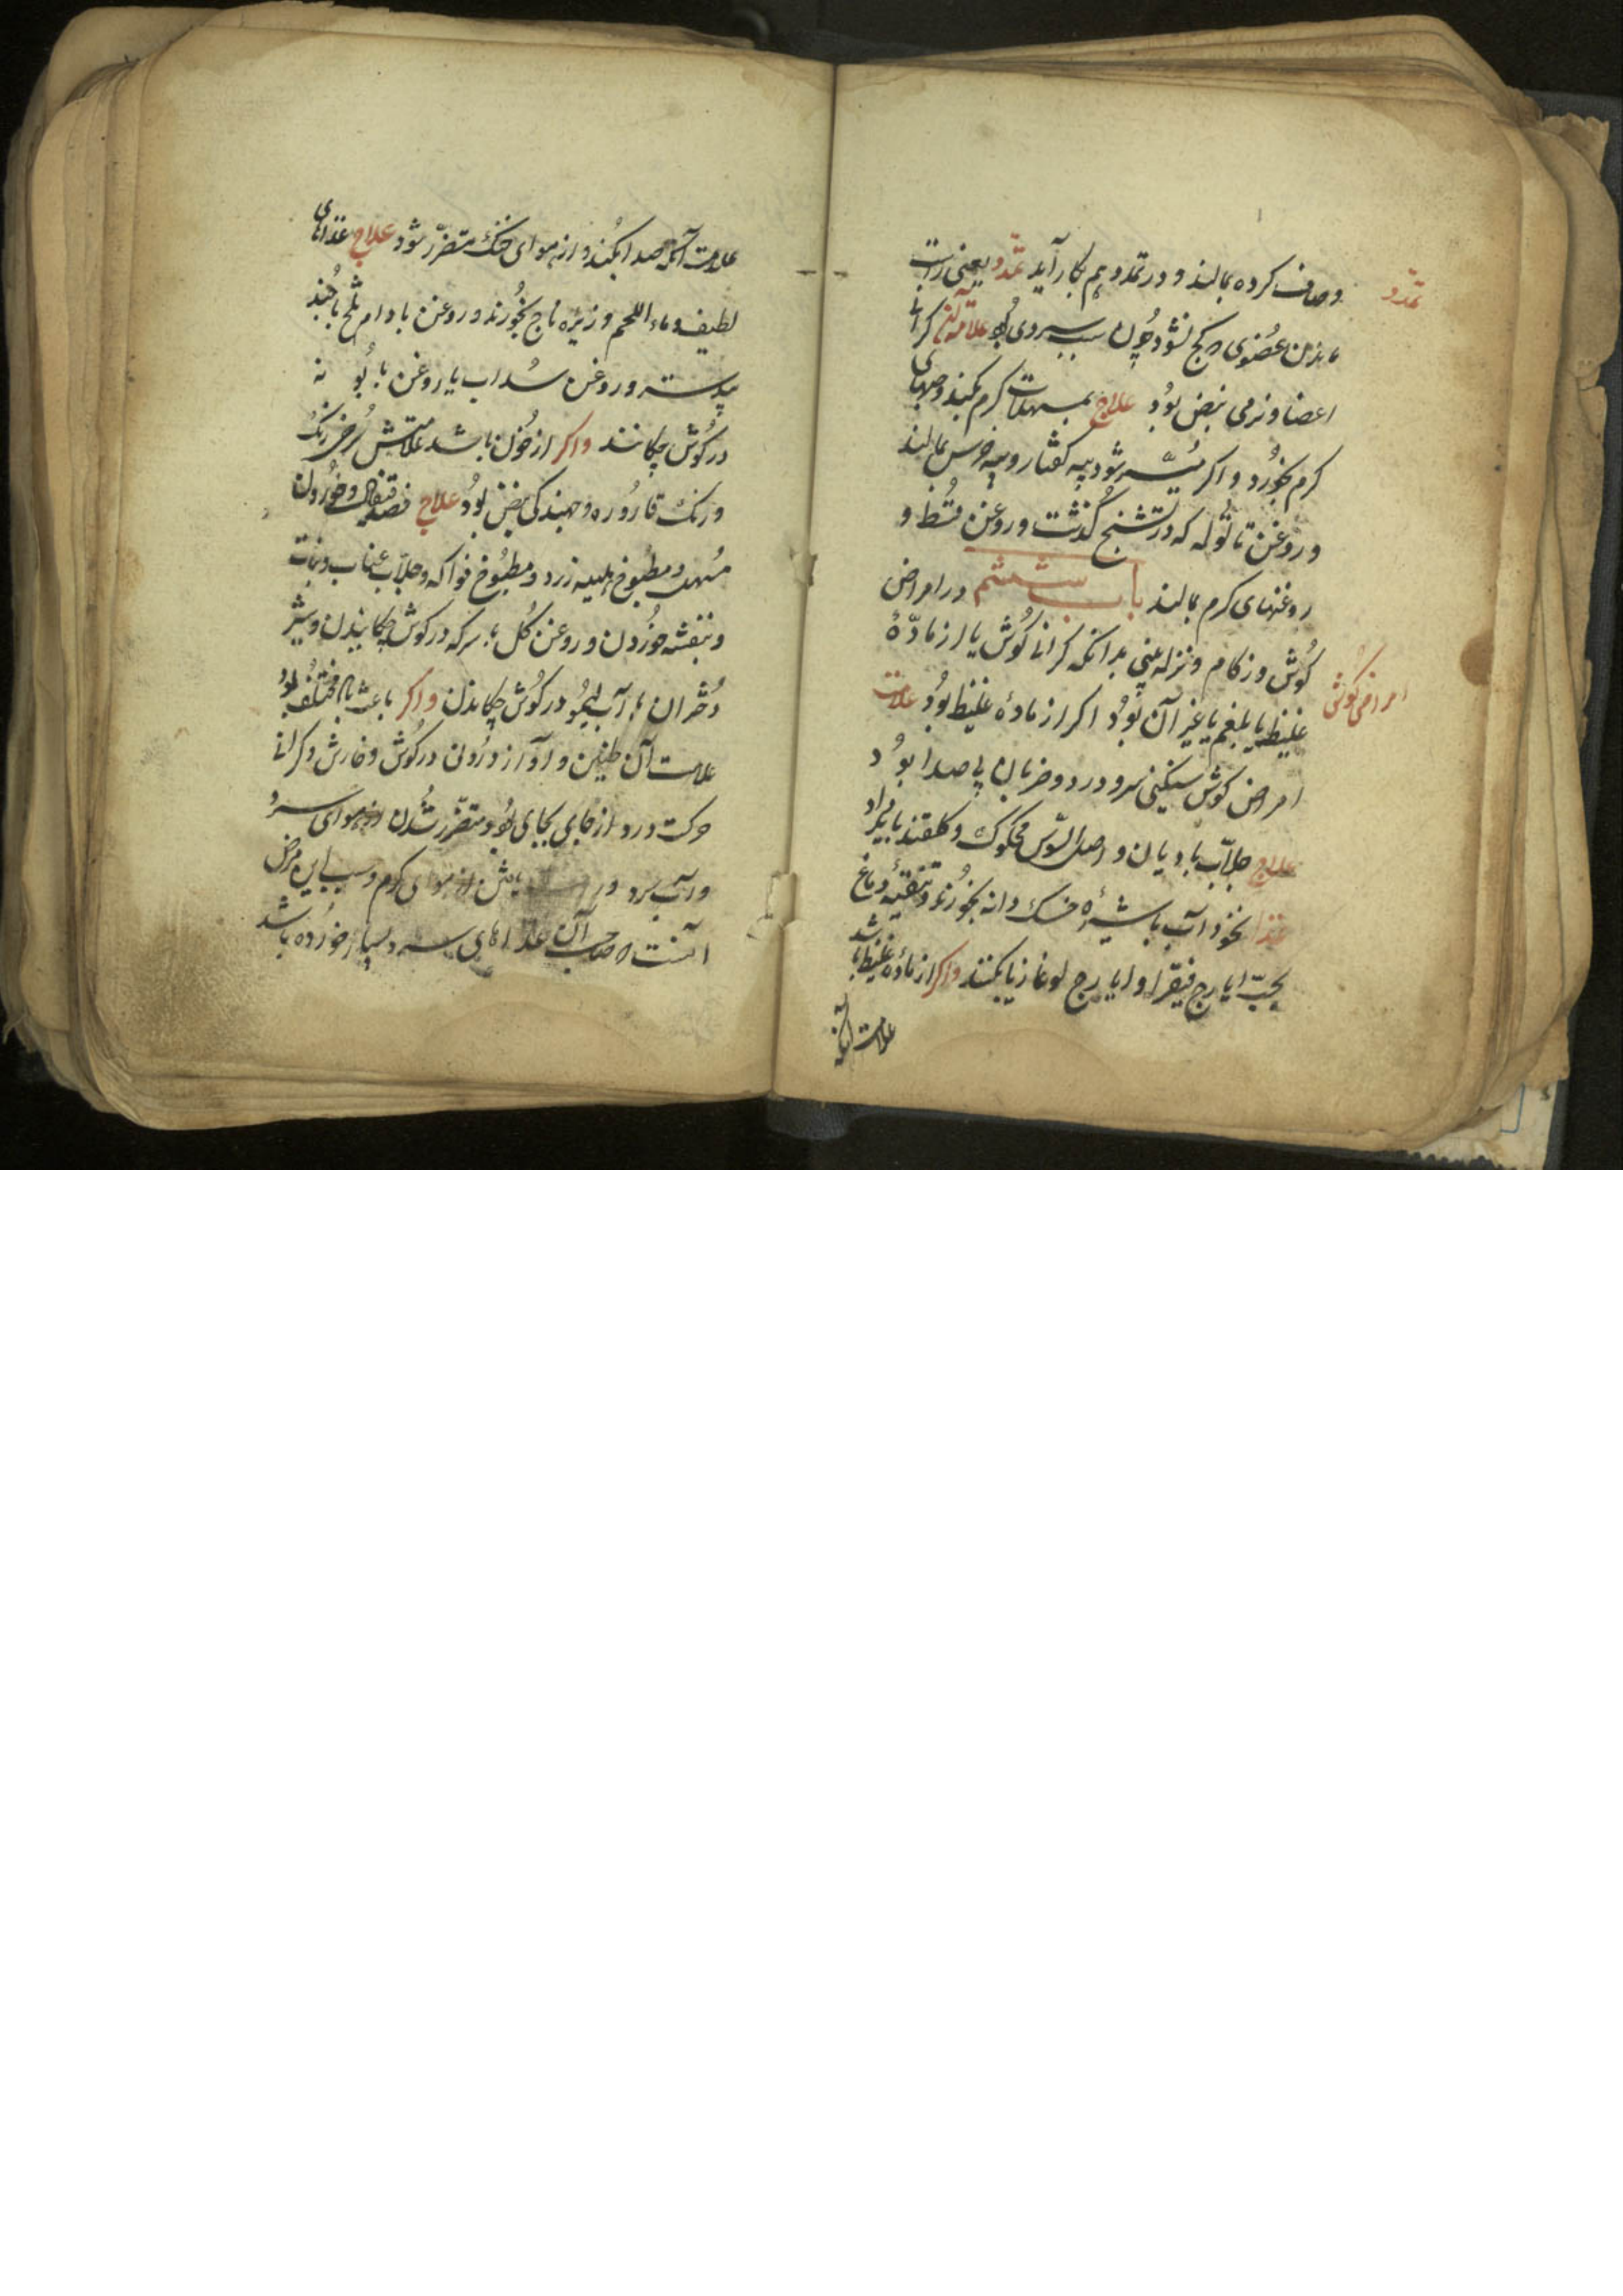 وصاف کرده بمالند و در تمدد هم بکار آید تمدّد یعنی راست
تمدّد
ماندن عضوی که کج نشود چون سبب سردی بود علامة آن گرانی
اعضا و نرمی نبض بود علاج بمسهلات کرم بکند و حبهای
کرم بخورد و اکر میسر شود پیه کفتار و پیه خرس بمالند
و روغن تاتوله که در تشنج گذشت و روغن قسط و
روغنهای کرم بمالند باب ششم در امراض
کوش و زکام و نزله یعنی بدانکه کرانی کوش یا از مادّهٔ
امراض کوش
غلیظ یا بلغم یا غیر آن بود اکر از مادهٔ غلیظ بود علامت
امراض کوش سنکینی سر و درد و ضربان بی صدا بود
علاج جلاّب بادیان و اصل السّوس محکوک و کلقند با یکدیگر
غذا نخود آب با شیرهٔ خسک دانه بخورند و تنقیهٔ دماغ
بحبّ ایارج فیقرا و ایارج لوغازیا بکنند واکر از مادهٔ غلیظ باشد
علامت آنکه
علامت آنکه صدا بکند و از هوای خنک متضرّر شود علاج غذاهای
لطیف و ماء اللحم و زیره باج بخورند و روغن بادام تلخ با جند
بیدستر و روغن سداب یا روغن بابونه
در کوش چکانند واکر از خون باشد علامتش سرخی رنک
و رنک قاروره و جهندگی نبض بود علاج فصد قیفال و خوردن
مسهل و مطبوخ هلیله زرد و مطبوخ فواکه و جلاّب عناب و نبات
و بنفشه خوردن و روغن کل با سرکه در کوش چکانیدن و شیر
دختران با آب لیمو در کوش چکانیدن واکر باعث ریح مختلف بود
علامت آن طنین و آواز درون در کوش و خارش و کرانی
حرکت درد از جایی بجای بود و متضرّر شدن از هوای سرد
و آب سرد و یافتن از هوای کرم و سبب این مرض
آنست که صاحب آن غذاهای سرد بسیار خورده باشد